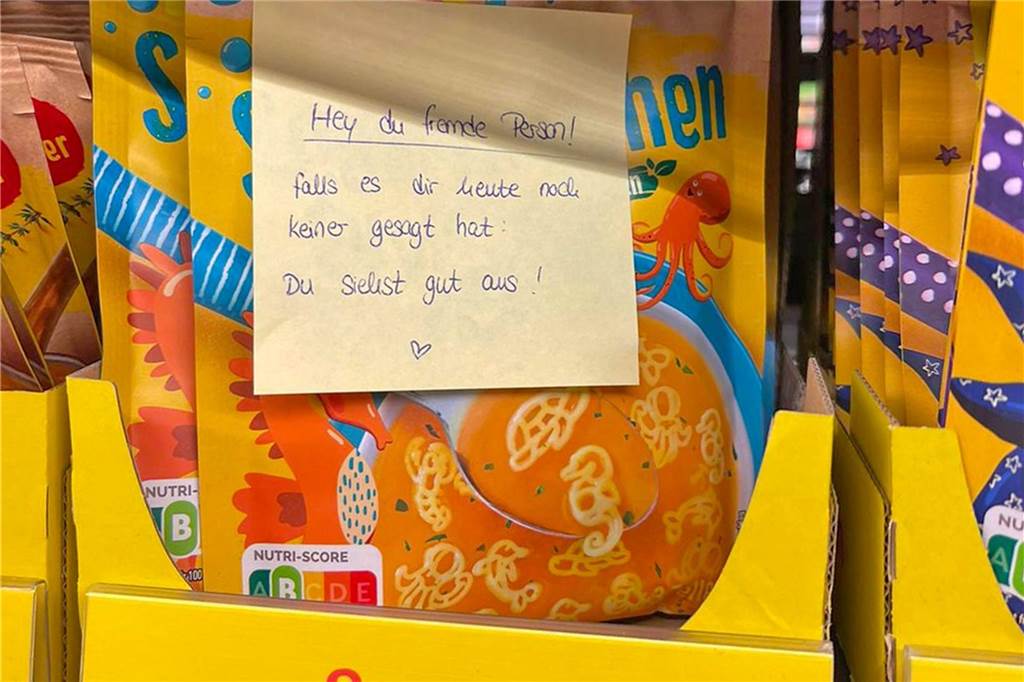 Hey du fremde Person!
falls es dir heute noch
keiner gesagt hat:
Du siehst gut aus!
S
nen
er
NUTRI-
B
NUTRI-SCORE
A B C D E
NU
A